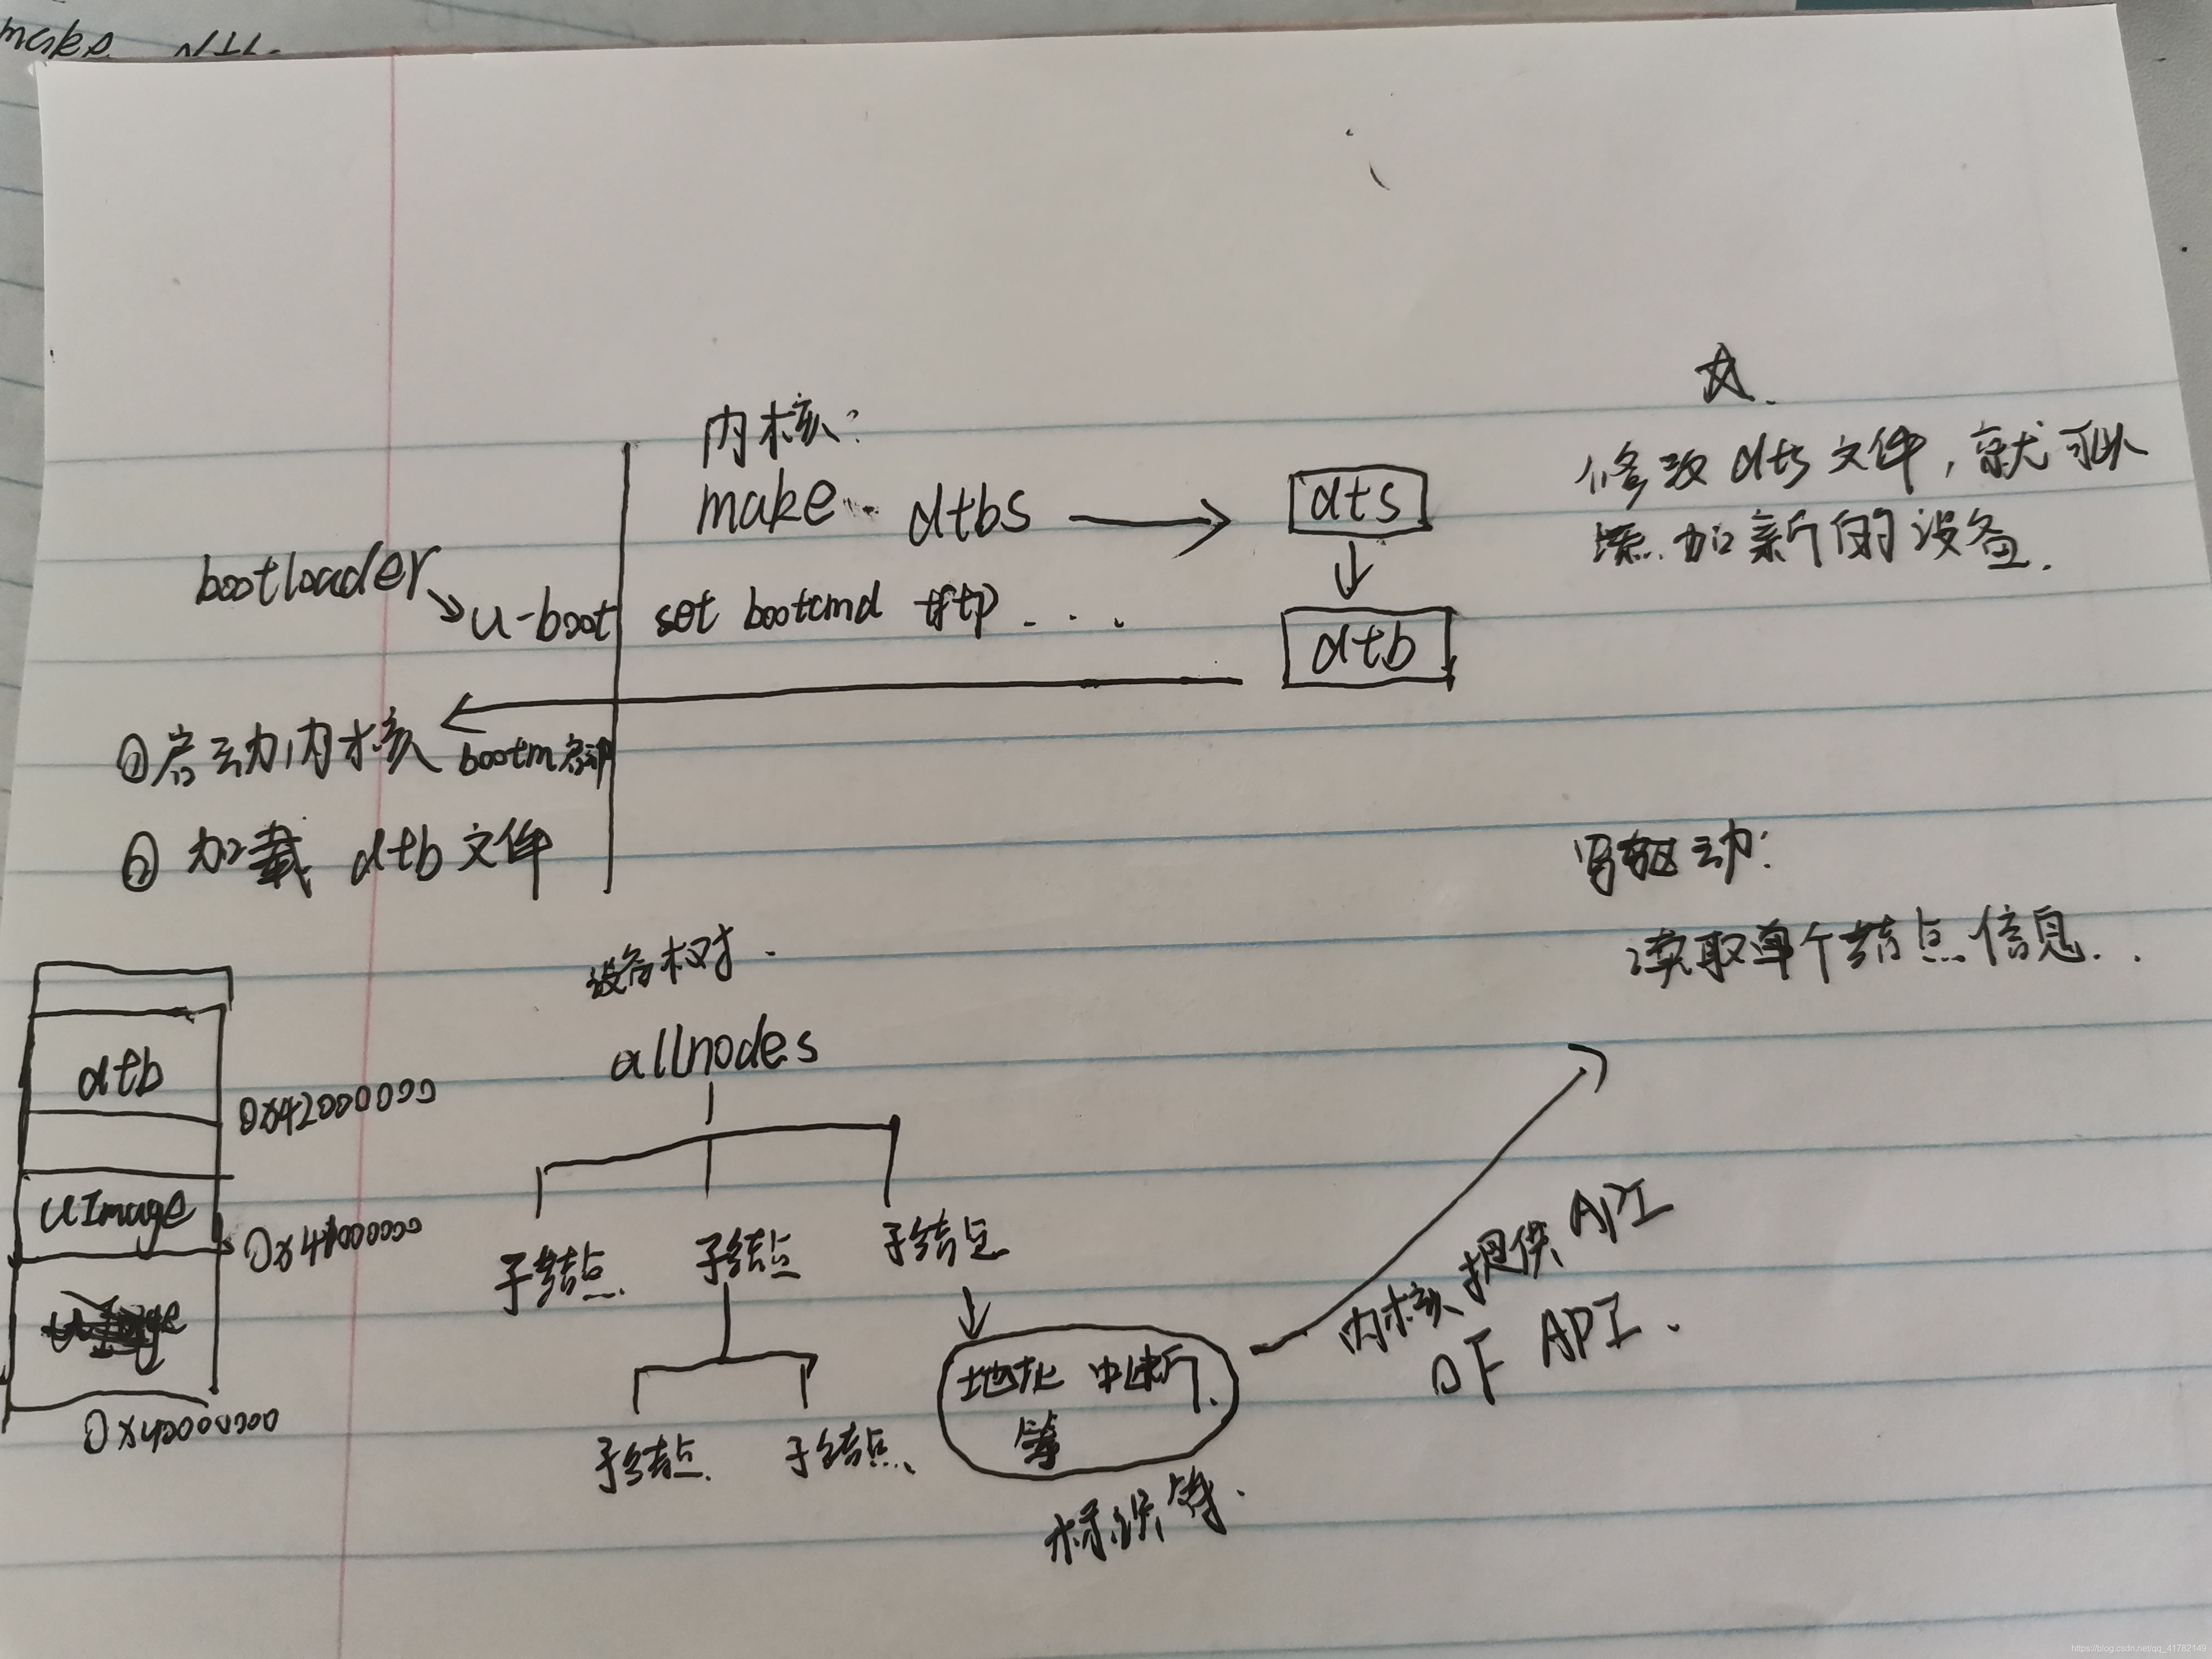 内核:
make dtbs
dts
☆.
修改dts文件,就可以
添加新的设备.
bootloader
u-boot
set bootcmd tftp ....
dtb
①启动内核
bootm启动
② 加载 dtb文件
写驱动:
读取单个结点信息..
设备树.
allnodes
dtb
0x42000000
uImage
0x41000000
0x40000000
子结点.
子结点
子结点
子结点.
子结点.
地址 中断.
等
标识等.
内核提供API
OF API.
https://blog.csdn.net/qq_41782149